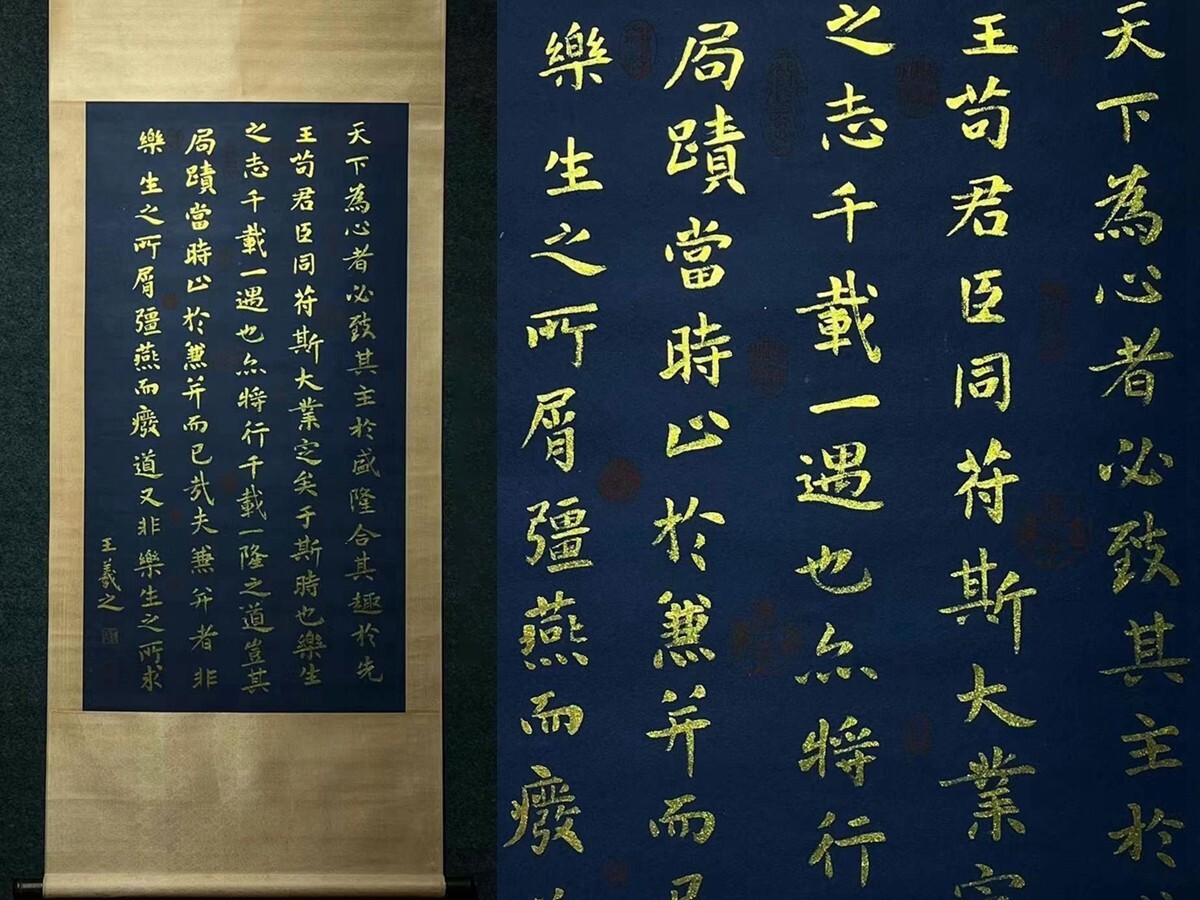 天下為心者必致其主於盛隆合其趣於先
王苟君臣同符斯大業定矣于斯時也樂生
之志千載一遇也亦將行千載一隆之道豈其
局蹟當時止於兼并而已哉夫兼并者非
樂生之所屑彊燕而廢道又非樂生之所求
王羲之
天下為心者必致其主於
王苟君臣同符斯大業定
之志千載一遇也亦將行
局蹟當時止於兼并而已
樂生之所屑彊燕而廢